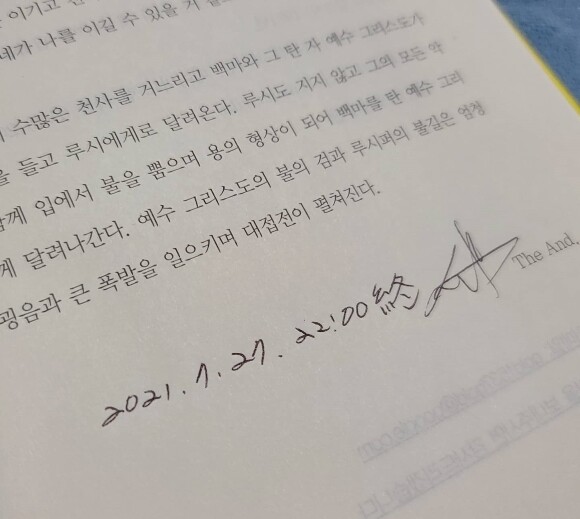 이기고
네가 나를 이길 수 있을
수많은 천사를 거느리고 백마와 그 탄 자 예수 그리스도가
들고 루시에게로 달려온다. 루시도 지지 않고 그의 모든 악
함께 입에서 불을 뿜으며 용의 형상이 되어 백마를 탄 예수 그리
게 달려나간다. 예수 그리스도의 불의 검과 루시퍼의 불길은 엄청
굉음과 큰 폭발을 일으키며 대접전이 펼쳐진다.
The And.
2021. 7. 27. 22:00 終